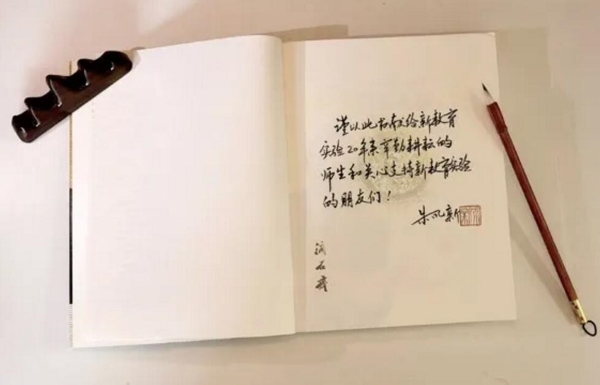 谨以此书献给新教育
实验20年来辛勤耕耘的
师生和关心支持新教育实验
的朋友们！